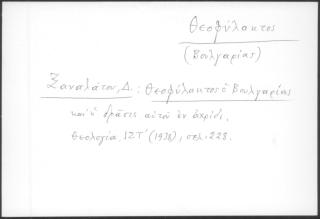 Θεοφύλακτος
(Βουλγαρίας)
Ξαναλάτου, Δ. : Θεοφύλακτος ὁ Βουλγαρίας
καὶ ἡ δρᾶσις αὐτοῦ ἐν Ἀχρίδι.
Θεολογία, ΙΣΤ´ (1938), σελ. 228.